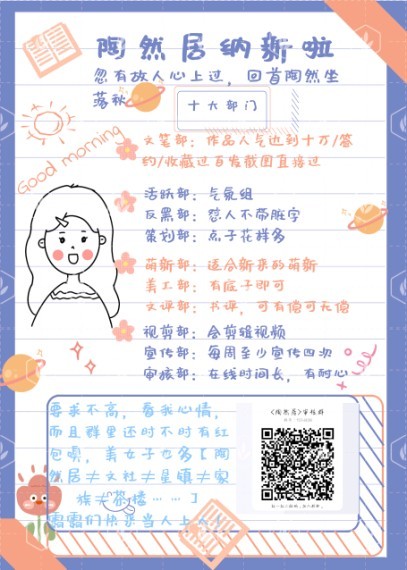 陶然居纳新啦
忽有故人心上过，回首陶然坐
落秋
十大部门
文笔部：作品人气达到十万/签
约/收藏过百发截图直接过
Good morning
活跃部：气氛组
反黑部：怼人不带脏字
策划部：点子花样多
萌新部：适合新来的萌新
美工部：有底子即可
文评部：书评，可有偿可无偿
视剪部：会剪辑视频
宣传部：每周至少宣传四次
审核部：在线时间长，有耐心
要求不高，看我心情，
而且群里还时不时有红
包噢，美女子也多【陶
然居≠文社≠星镇≠家
族≠茶楼……】
《陶然居》审核群